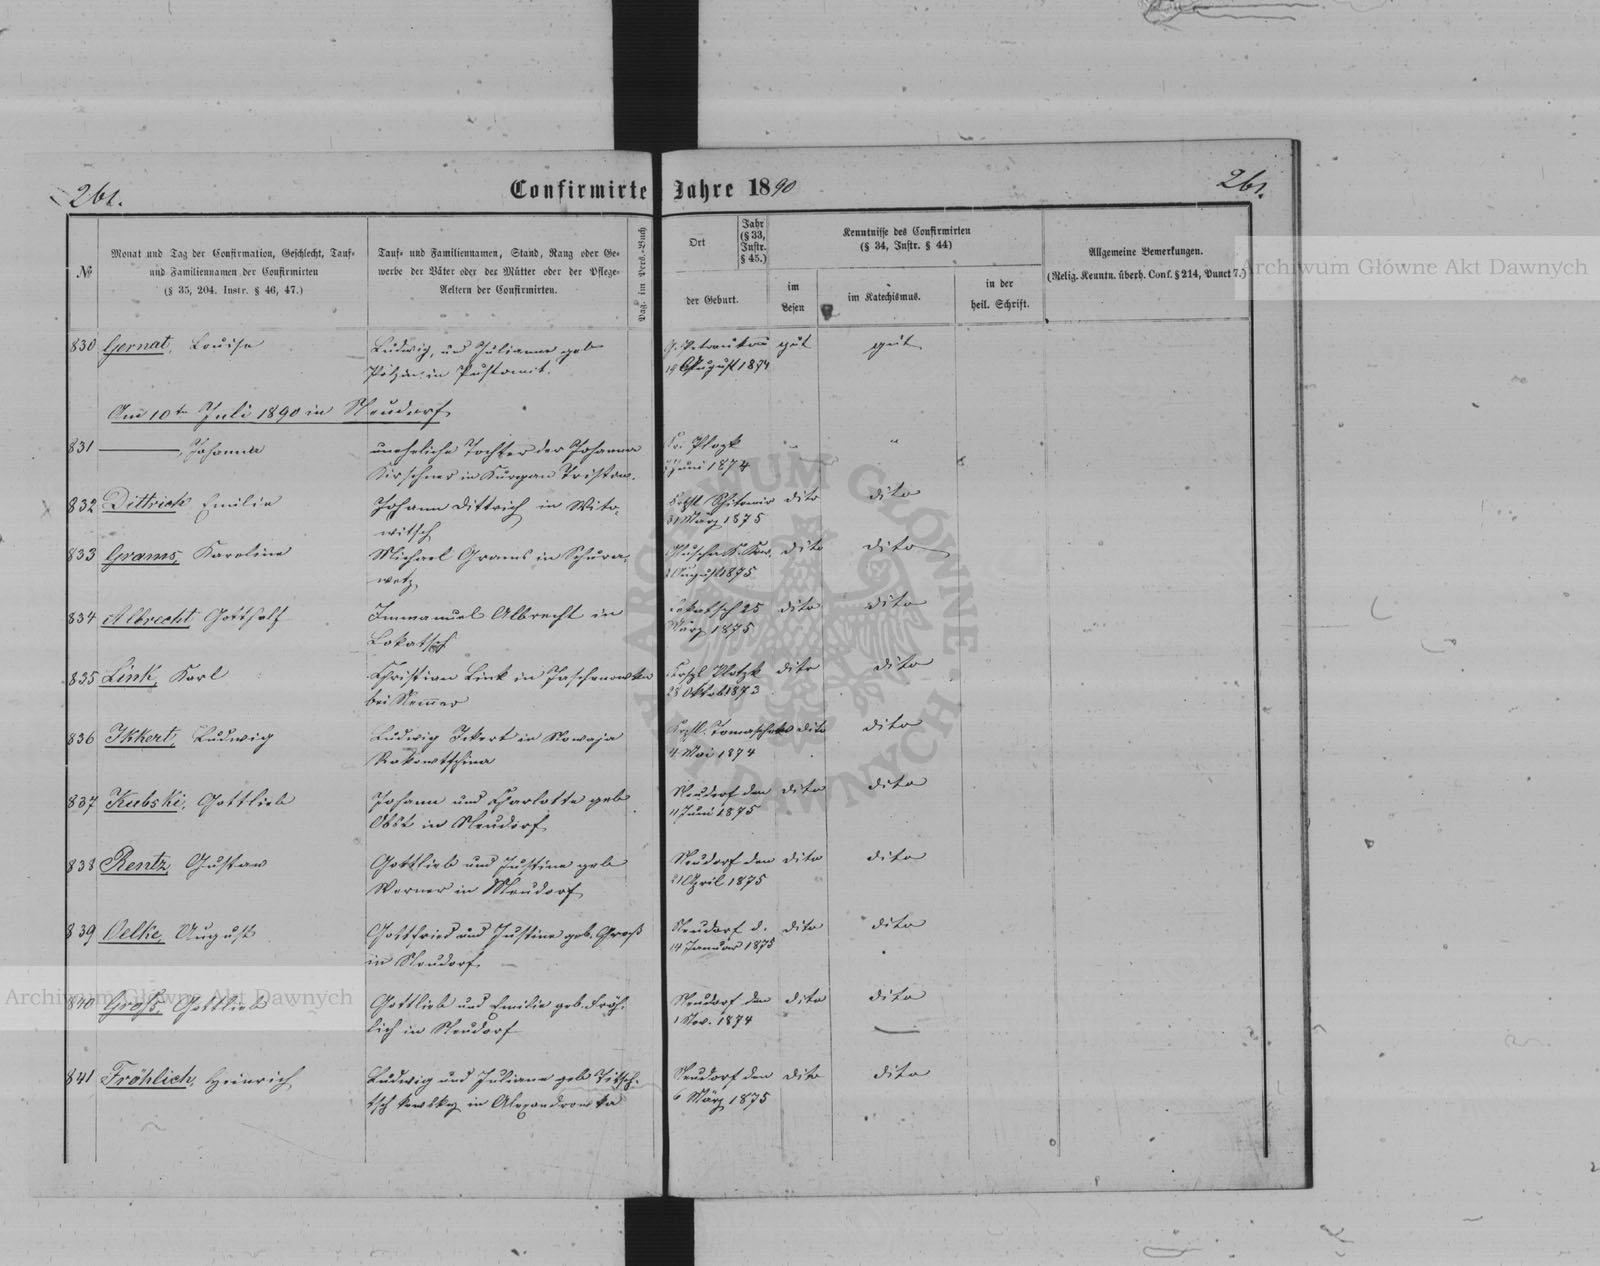 261.
Confirmirte Jahre 1890
261.
№
Monat und Tag der Confirmation, Geschlecht, Tauf-
und Familiennamen der Confirmirten
(§ 35, 204. Instr. § 46, 47.)
Tauf- und Familiennamen, Stand, Rang oder Ge-
werbe der Väter oder der Mütter oder der Pflege-
Aeltern der Confirmirten.
Pag. im Pers.-Buch
Ort
Jahr
(§ 33,
Instr.
§ 45.)
der Geburt.
Kenntnisse des Confirmirten
(§ 34, Instr. § 44)
im
Lesen
im Katechismus.
in der
heil. Schrift.
Allgemeine Bemerkungen.
(Relig. Kenntn. überh. Conf. § 214, Punct 7.)
830 Gernat, Louise
Ludwig, und Julianne geb
in Pustomit.
August 1874
gut
gut
Am 10ten Juli 1890 in Neudorf
831 Johanna
uneheliche Tochter der Johanna
Kirschner in
Plozk
Juni 1874
"
"
832 Dittrich Emilie
Johann Dittrich in Wito-
witsch
Schitomir
31 März 1875
dito
dito
833 Grams, Karoline
Michael Grams in Schura-
wetz
August 1875
dito
dito
834 Albrecht Gotthalf
Immanuel Albrecht in
Lokatsch
Lokatsch 25
März 1875
dito
dito
835 Link, Karl
Christian Link in Jaschenowka
bei
Plotzk
28 Oktob 1873
dito
dito
836 Ikkert, Ludwig
Ludwig Ikert in Nowaja
Rakowtschina
4. Mai 1874
dito
dito
837 Kubski, Gottlieb
Johann und Charlotte geb
Obst in Neudorf
Neudorf den
11 Juni 1875
dito
dito
838 Rentz, Gustav
Gottlieb und Justine geb
Werner in Neudorf
Neudorf den
21 April 1875
dito
dito
839 Oelke, August
Gottfried und Justine geb. Groß
in Neudorf
Neudorf d.
14 Januar 1875
dito
dito
840 Groß, Gottlieb
Gottlieb und Emilie geb. Fröh-
lich in Neudorf
Neudorf den
1 Nov. 1874
dito
dito
841 Fröhlich, Heinrich
Ludwig und Juliane geb
in Alexandrowka
Neudorf den
6 März 1875
dito
dito
Archiwum Główne Akt Dawnych
Archiwum Główne Akt Dawnych
ARCHIWUM GŁÓWNE AKT DAWNYCH